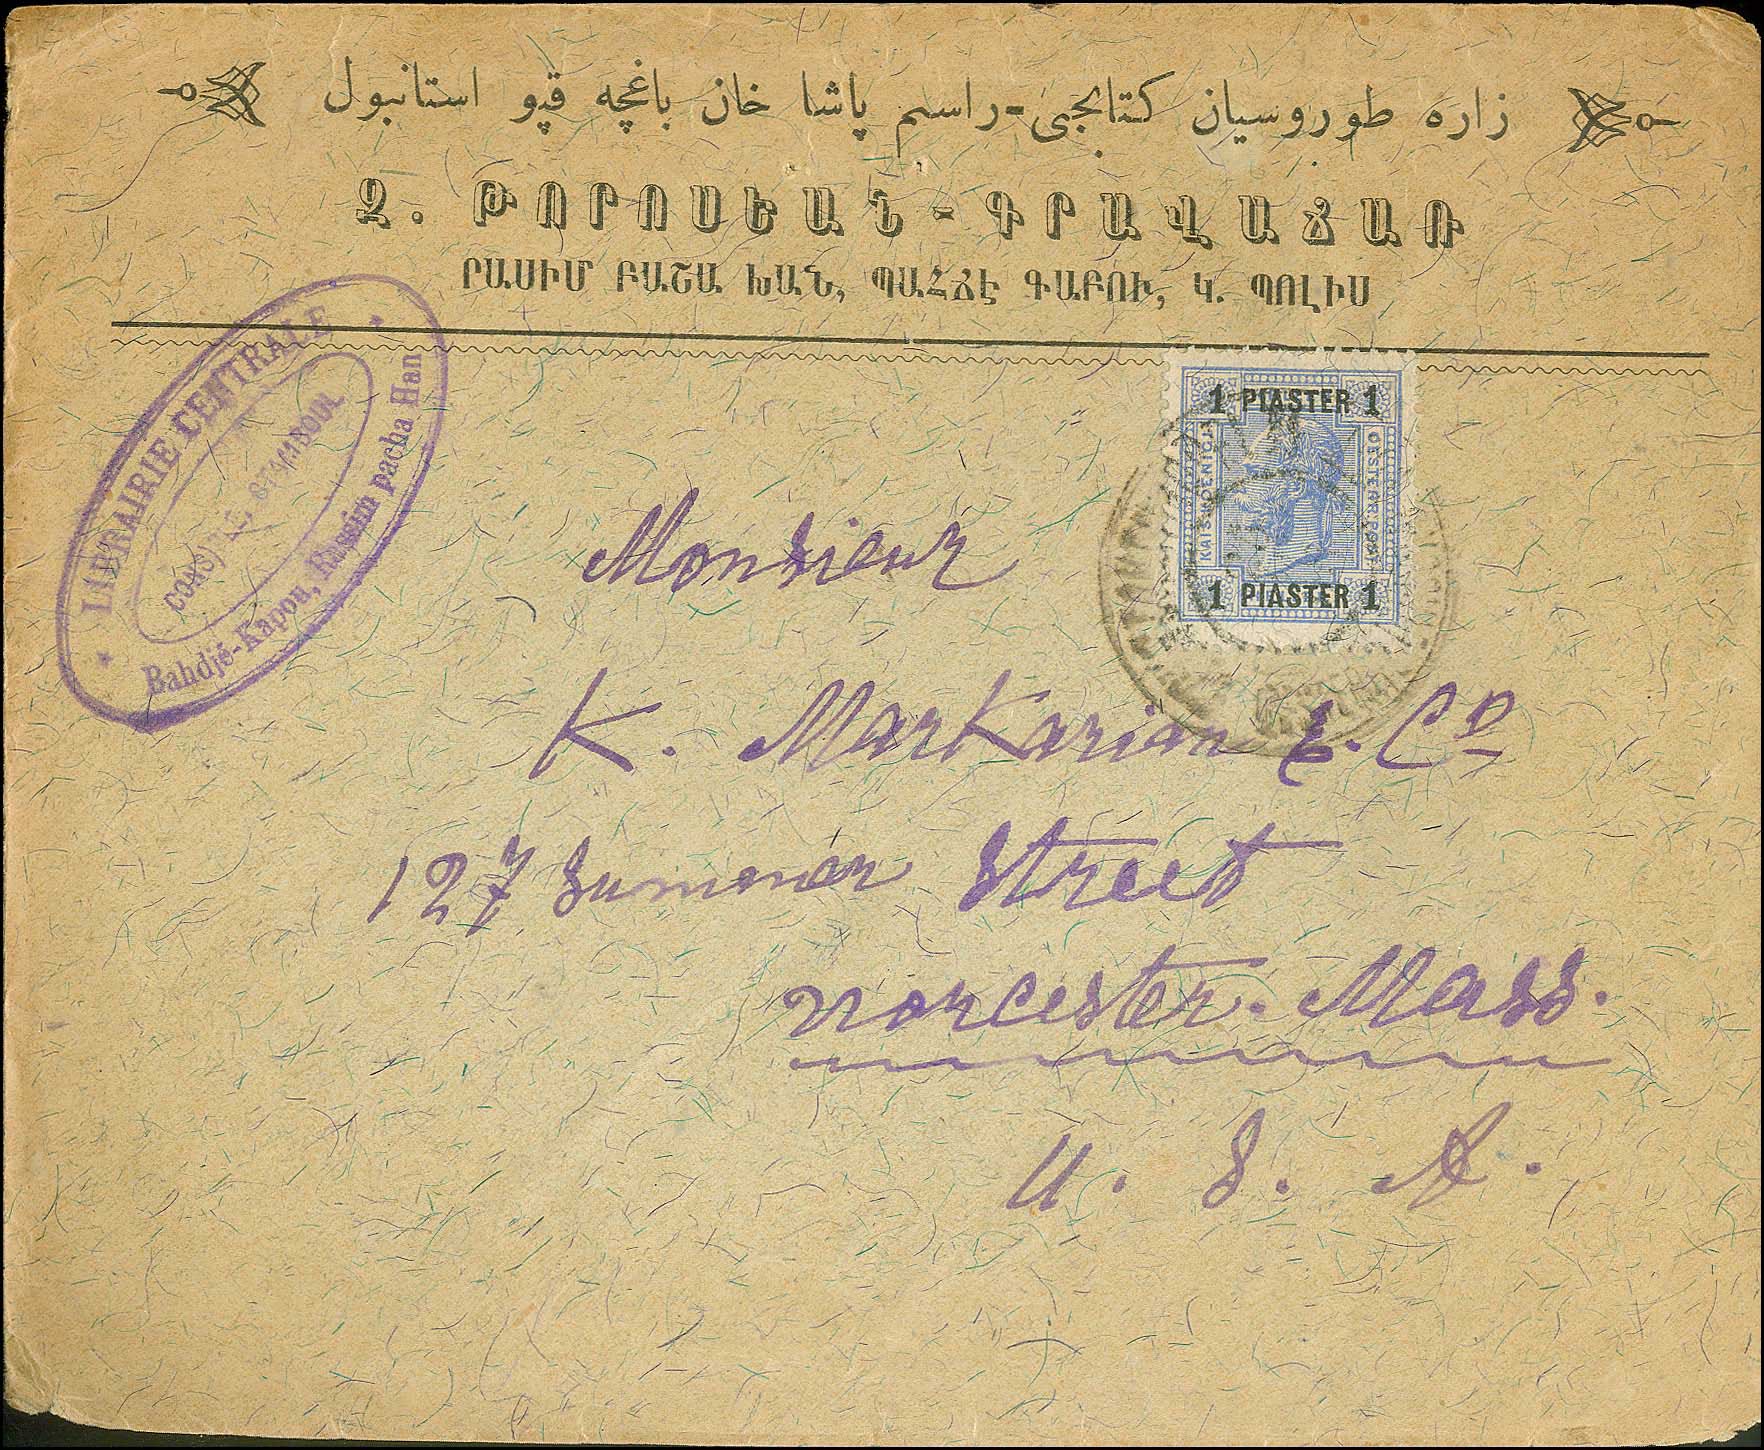 زاره طوروسیان کتابجی-راسم پاشا خان باغچه قپو استانبول
Զ. ԹՈՐՈՍԵԱՆ-ԳՐԱՎԱՃԱՌ
ՐԱՍԻՄ ԲԱՇԱ ԽԱՆ, ՊԱՀՃԷ ԳԱԲՈՒ, Կ. ՊՈԼԻՍ
LIBRAIRIE CENTRALE
STAMBOUL
Bahdjé-Kapou, Rassim pacha Han
1 PIASTER 1
1 PIASTER 1
Monsieur
K. Markarian & Co
127 Summer Street
Worcester. Mass.
U. S. A.